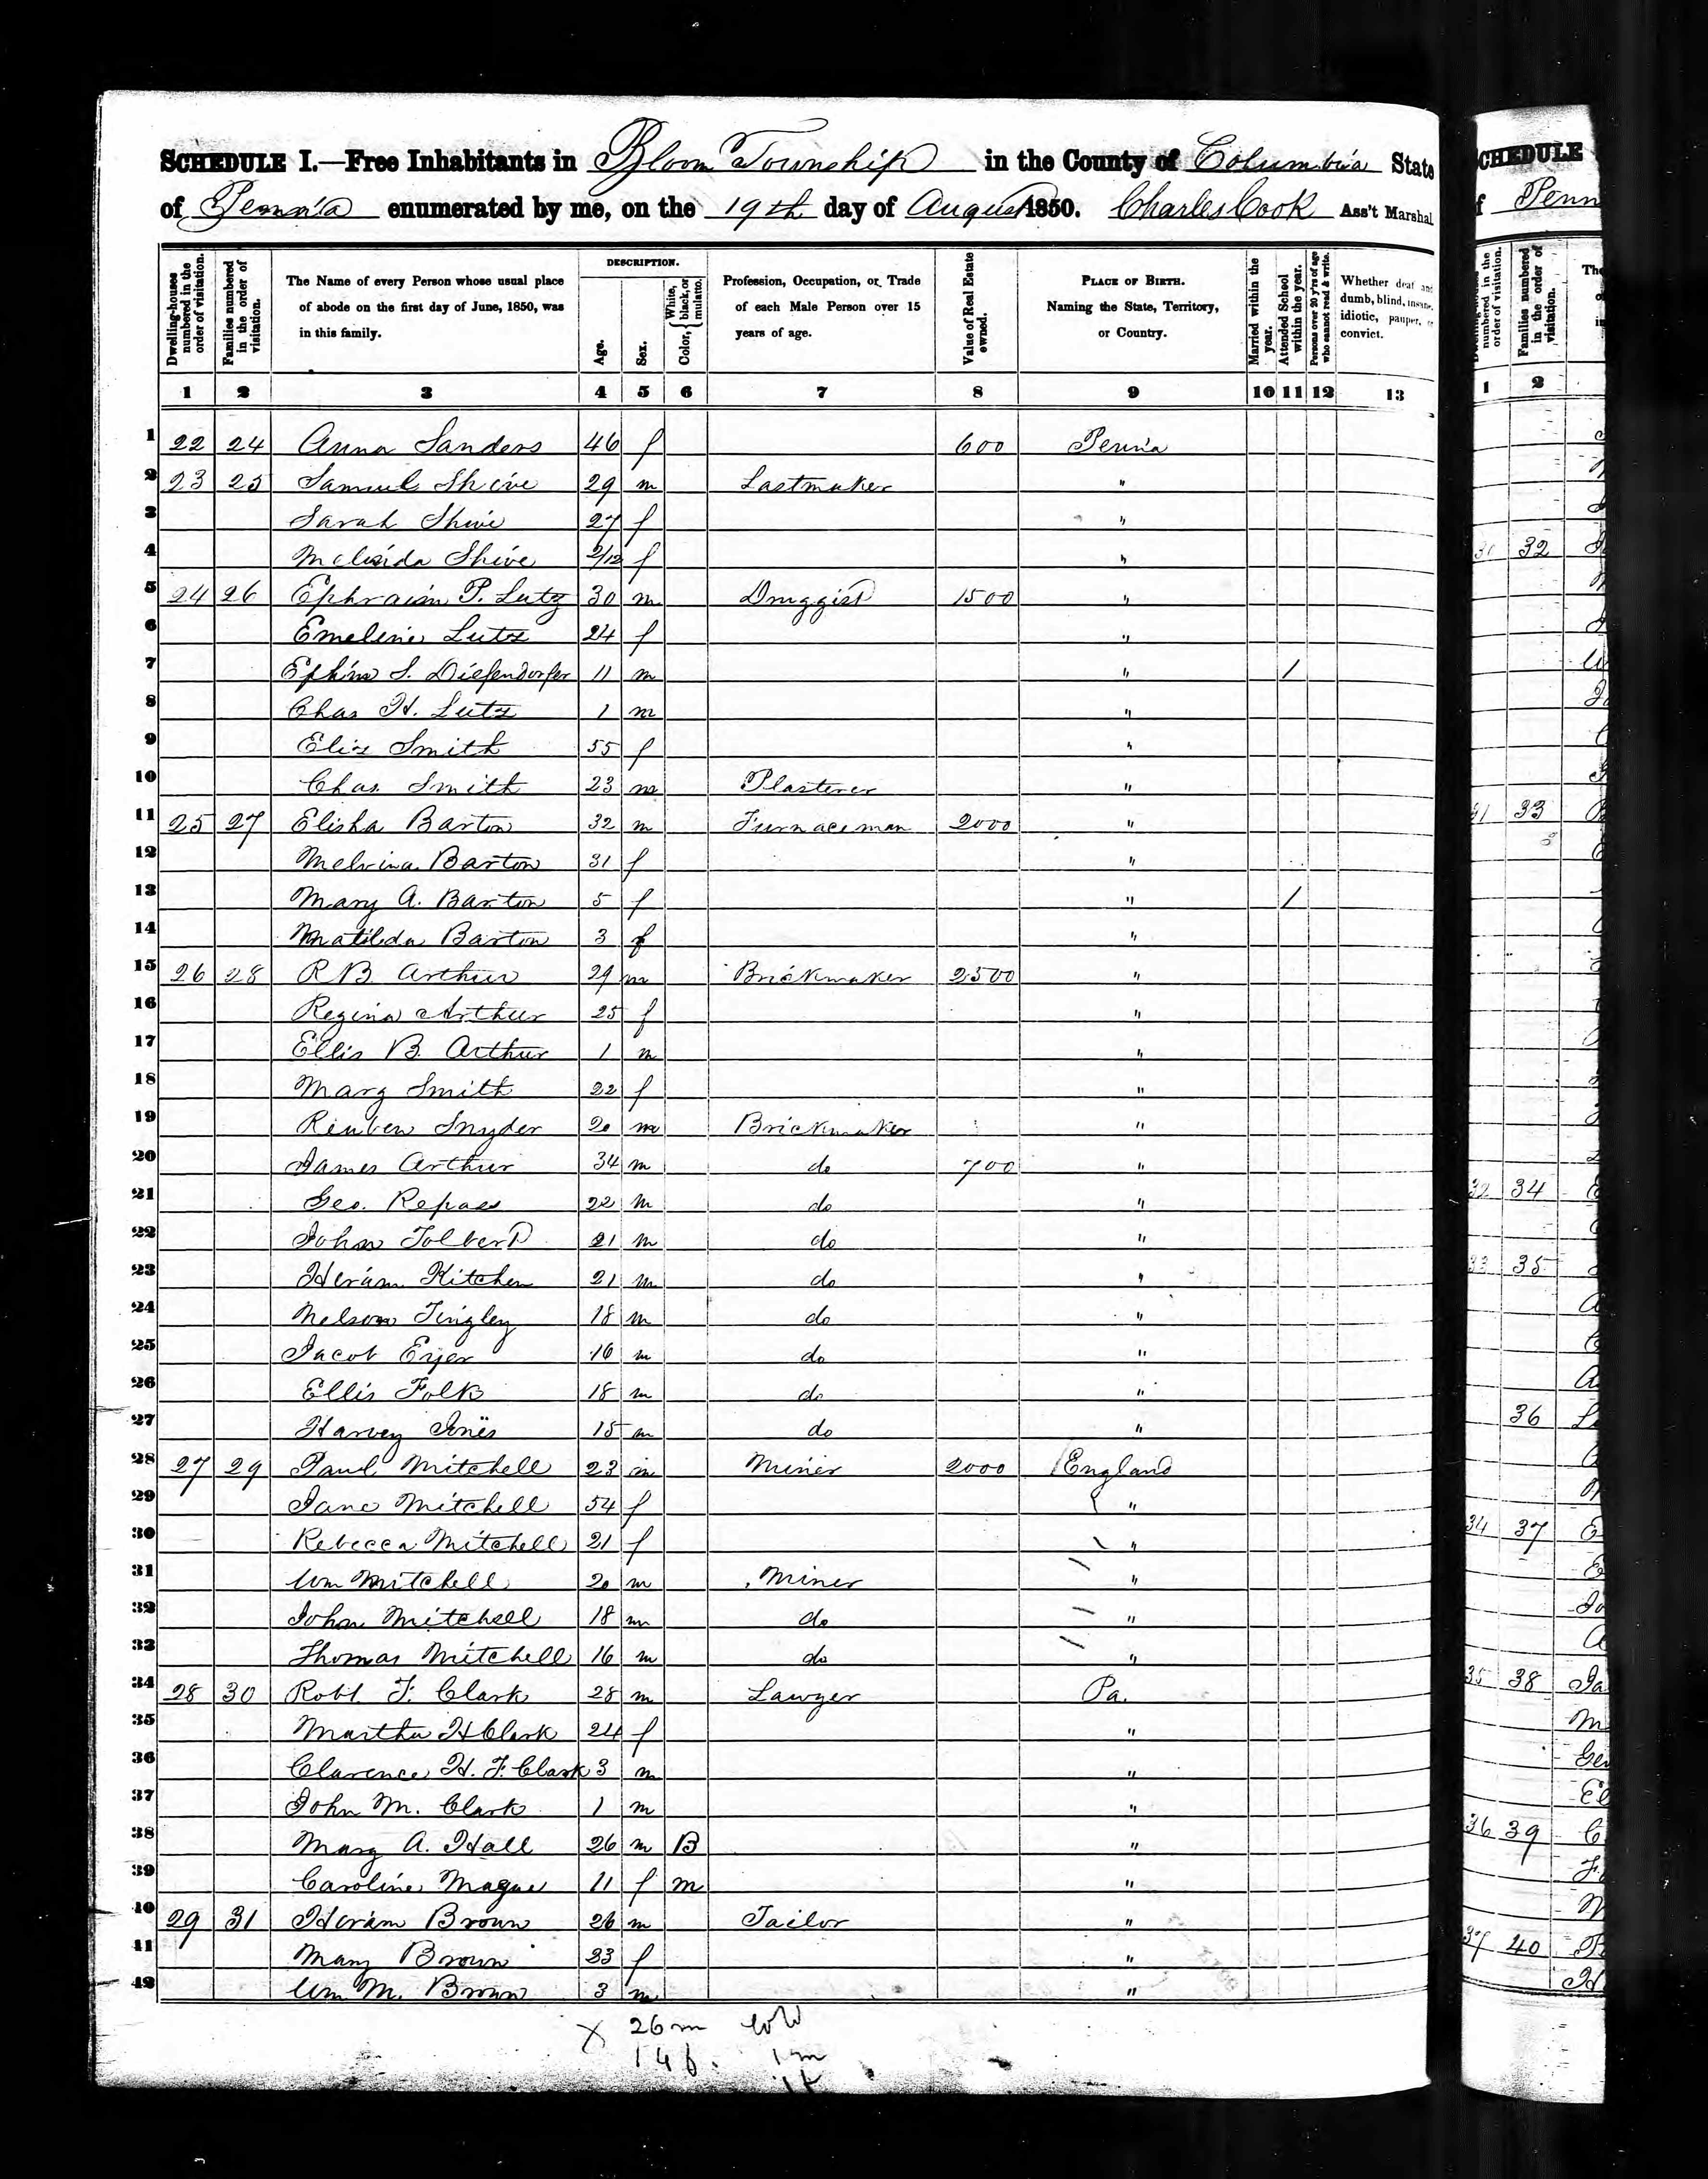 SCHEDULE I.—Free Inhabitants in Bloom Township in the County of Columbia State
of Penn'a enumerated by me, on the 19th day of August 1850. Charles Cook Ass't Marshal
Dwelling-houses numbered in the order of visitation.
Families numbered in the order of visitation.
The Name of every Person whose usual place of abode on the first day of June, 1850, was in this family.
DESCRIPTION.
Age.
Sex.
Color, White, black, or mulatto.
Profession, Occupation, or Trade of each Male Person over 15 years of age.
Value of Real Estate owned.
PLACE OF BIRTH. Naming the State, Territory, or Country.
Married within the year.
Attended School within the year.
Persons over 20 y'rs of age who cannot read & write.
Whether deaf and dumb, blind, insane, idiotic, pauper, or convict.
1 2 3 4 5 6 7 8 9 10 11 12 13
1 22 24 Anna Sanders 46 f 600 Penn'a
2 23 25 Samuel Shive 29 m Lastmaker "
3 Sarah Shive 27 f "
4 Melisida Shive /12 f "
5 24 26 Ephraim P. Lutz 30 m Druggist 1500 "
6 Emeline Lutz 24 f "
7 S. Diefendorfer 11 m " /
8 Chas H. Lutz 1 m "
9 Eliz Smith 55 f "
10 Chas. Smith 23 m Plasterer "
11 25 27 Elisha Barton 32 m Furnaceman 2000 "
12 Melvina Barton 31 f "
13 Mary A. Barton 5 f " /
14 Matilda Barton 3 f "
15 26 28 R B. Arthur 29 m Brickmaker 2500 "
16 Regina Arthur 25 f "
17 Ellis B. Arthur 1 m "
18 Mary Smith 22 f "
19 Reuben Snyder 20 m Brickmaker "
20 James Arthur 34 m do 700 "
21 Geo. Repass 22 m do "
22 John Tolbert 21 m do "
23 Hiram Kitchen 21 m do "
24 Nelson Tingley 18 m do "
25 Jacob Eyer 16 m do "
26 Ellis Folk 18 m do "
27 Harvey 15 m do "
28 27 29 Paul Mitchell 23 m Miner 2000 England
29 Jane Mitchell 54 f "
30 Rebecca Mitchell 21 f "
31 Wm Mitchell 20 m Miner "
32 John Mitchell 18 m do "
33 Thomas Mitchell 16 m do "
34 28 30 Robt. F. Clark 28 m Lawyer Pa.
35 Martha H Clark 24 f "
36 Clarence H. F. Clark 3 m "
37 John M. Clark 1 m "
38 Mary A. Hall 26 m B "
39 Caroline Mague 11 f m "
40 29 31 Hiram Brown 26 m Tailor "
41 Mary Brown 23 f "
42 Wm M. Brown 3 m "
X 26 m
14 f. 1 m
SCHEDULE
f Penn
numbered in the order of visitation.
Families numbered in the order of visitation.
1 2
32
33
34
35
36
34 37
35 38 Ja
36 39
37 40